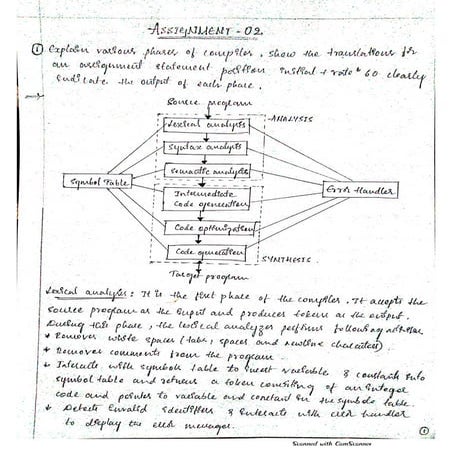 ASSIGNMENT - 02.
① Explain various phases of compiler. show the translations for
an assignment statement position initial + rate * 60 clearly
indicate the output of each phase.
Source program
ANALYSIS
Lexical analysis
Syntax analysis
Semantic analysis
Symbol Table
Error Handler
Intermediate
Code generation
Code optimization
Code generation
SYNTHESIS
Target program
Lexical analysis: It is the first phase of the compiler. It accepts the
source program as the input and produces tokens as the output.
During this phase, the lexical analyzer performs following
* Remove white spaces (tabs, spaces and newline characters)
* Remove comments from the program.
* Interacts with symbol table to insert variable & constants into
symbol table and returns a token consisting of an integer
code and pointer to variable and constant in the symbols table
* Detects invalid identifiers & interacts with error handler
to display the error messages.
①
Scanned with CamScanner